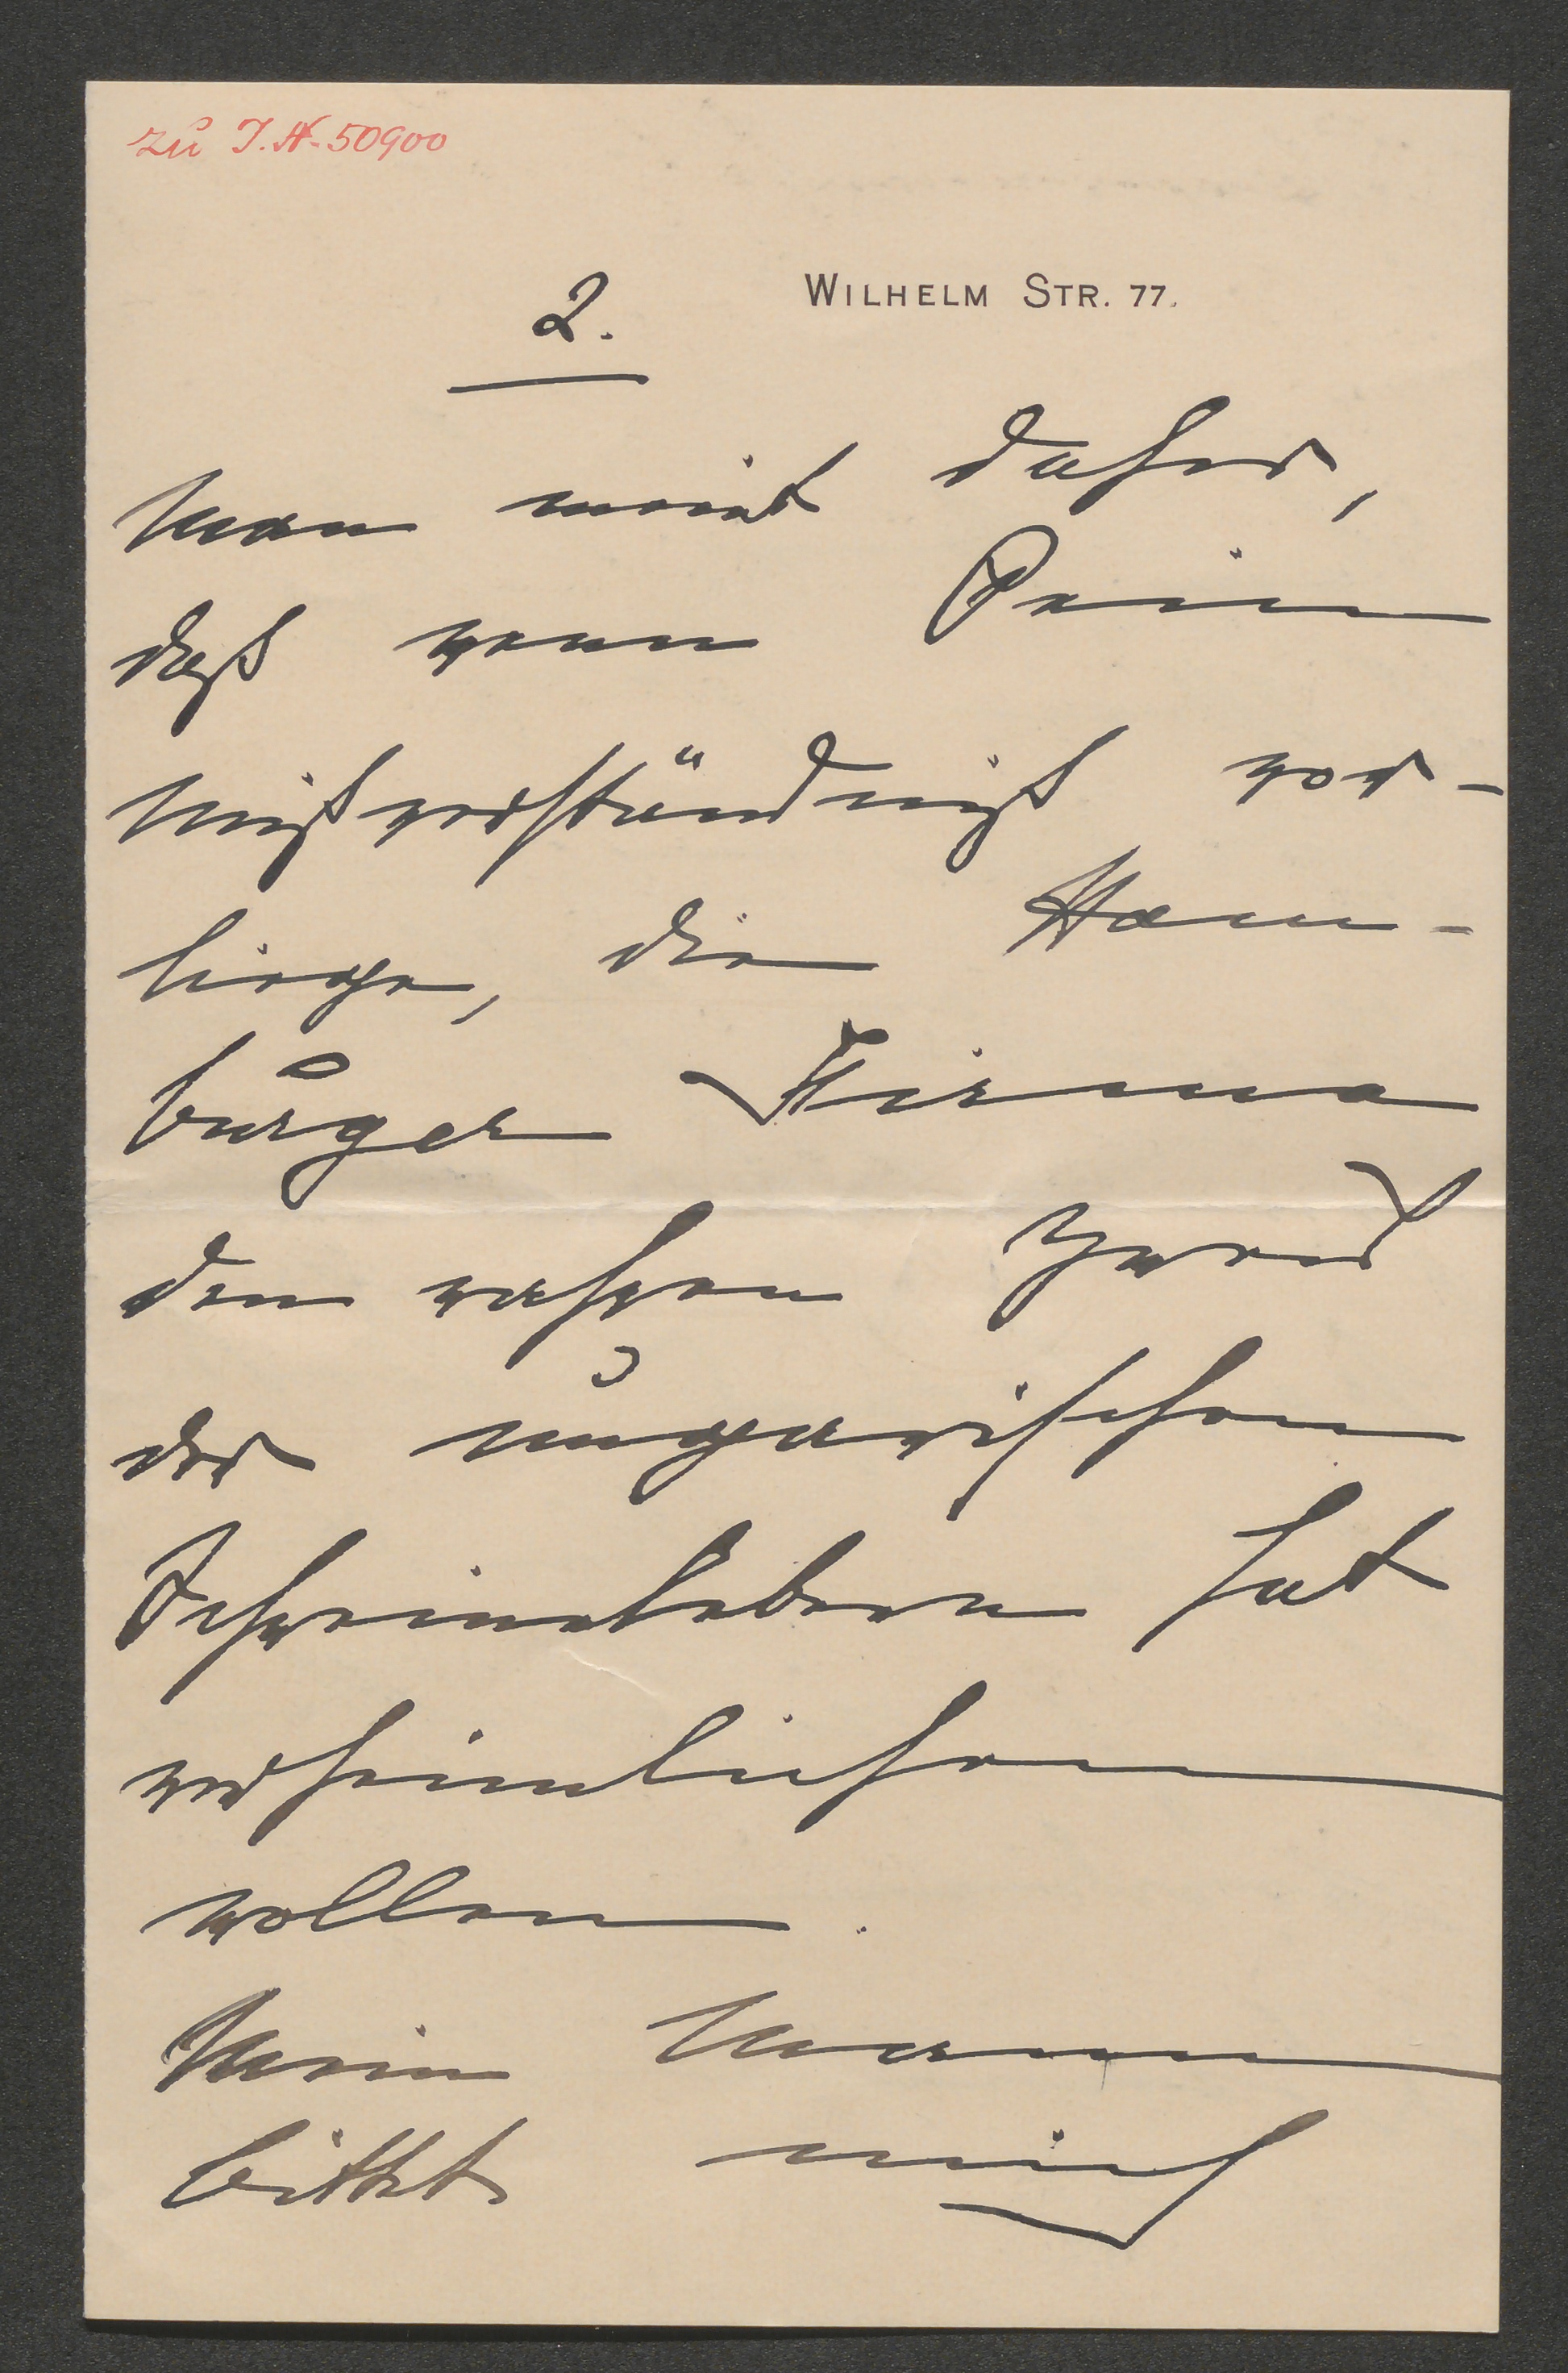 zu I.N. 50900
WILHELM STR. 77.
2.
Man meint daher,
daß wenn kein
Mißverständniß vor-
liege, die Ham-
burger Firma
den wahren Zweck
der ungarischen
Schweinelebern hat
verheimlichen
wollen.
Mein Mann
bittet mich